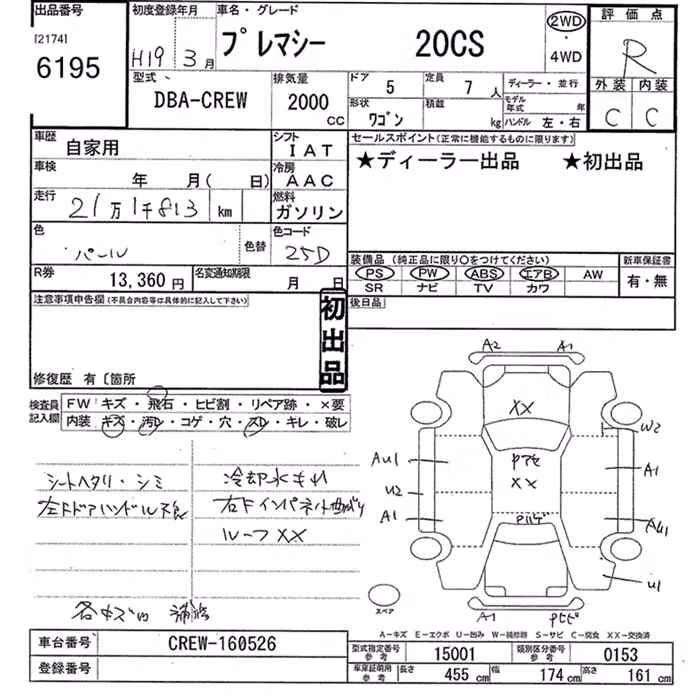 出品番号
[2174]
6195
初度登録年月
H19年3月
車名・グレード
プレマシー 20CS
2WD
・
4WD
評価点
R
外装 内装
C C
型式
DBA-CREW
排気量
2000
CC
ドア
5
定員
7人
ディーラー・並行
形状
ワゴン
積載
kg
モデル年式
年
ハンドル 左・右
車歴
自家用
シフト
IAT
車検
年 月( 日)
冷房
AAC
走行
21万1千813 km
燃料
ガソリン
色
パール
色替
色コード
25D
R券
13,360円
名変通知期限
月 日
セールスポイント(正常に機能するものに限ります)
★ディーラー出品 ★初出品
装備品 (純正品に限り○をつけてください)
PS PW ABS エアB AW
SR ナビ TV カワ
新車保証書
有・無
後日品
注意事項申告欄(不具合内容等は具体的に記入して下さい)
初出品
修復歴 有〔箇所
検査員記入欄
FW キズ・飛石・ヒビ割・リペア跡・×要
内装 キズ・汚D・コゲ・穴・スD・キレ・破レ
シートヘタリ・シミ
左ドアハンドル不良
冷却水モレ
ルーフXX
各キズ凹
A2 A1
XX
W2
AU1
A1
U2
XX
A1
AU1
U1
A1
スペア
A-キズ E-エクボ U-凹み W-補修跡 S-サビ C-腐食 XX-交換済
車台番号
CREW-160526
登録番号
型式指定番号
参考
15001
類別区分番号
参考
0153
車庫証明用
参考
長さ
455 cm
幅
174 cm
高さ
161 cm